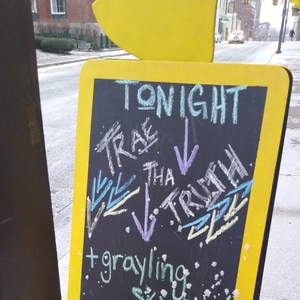 TONIGHT
TRAE
THA
TRUTH
+ grayling